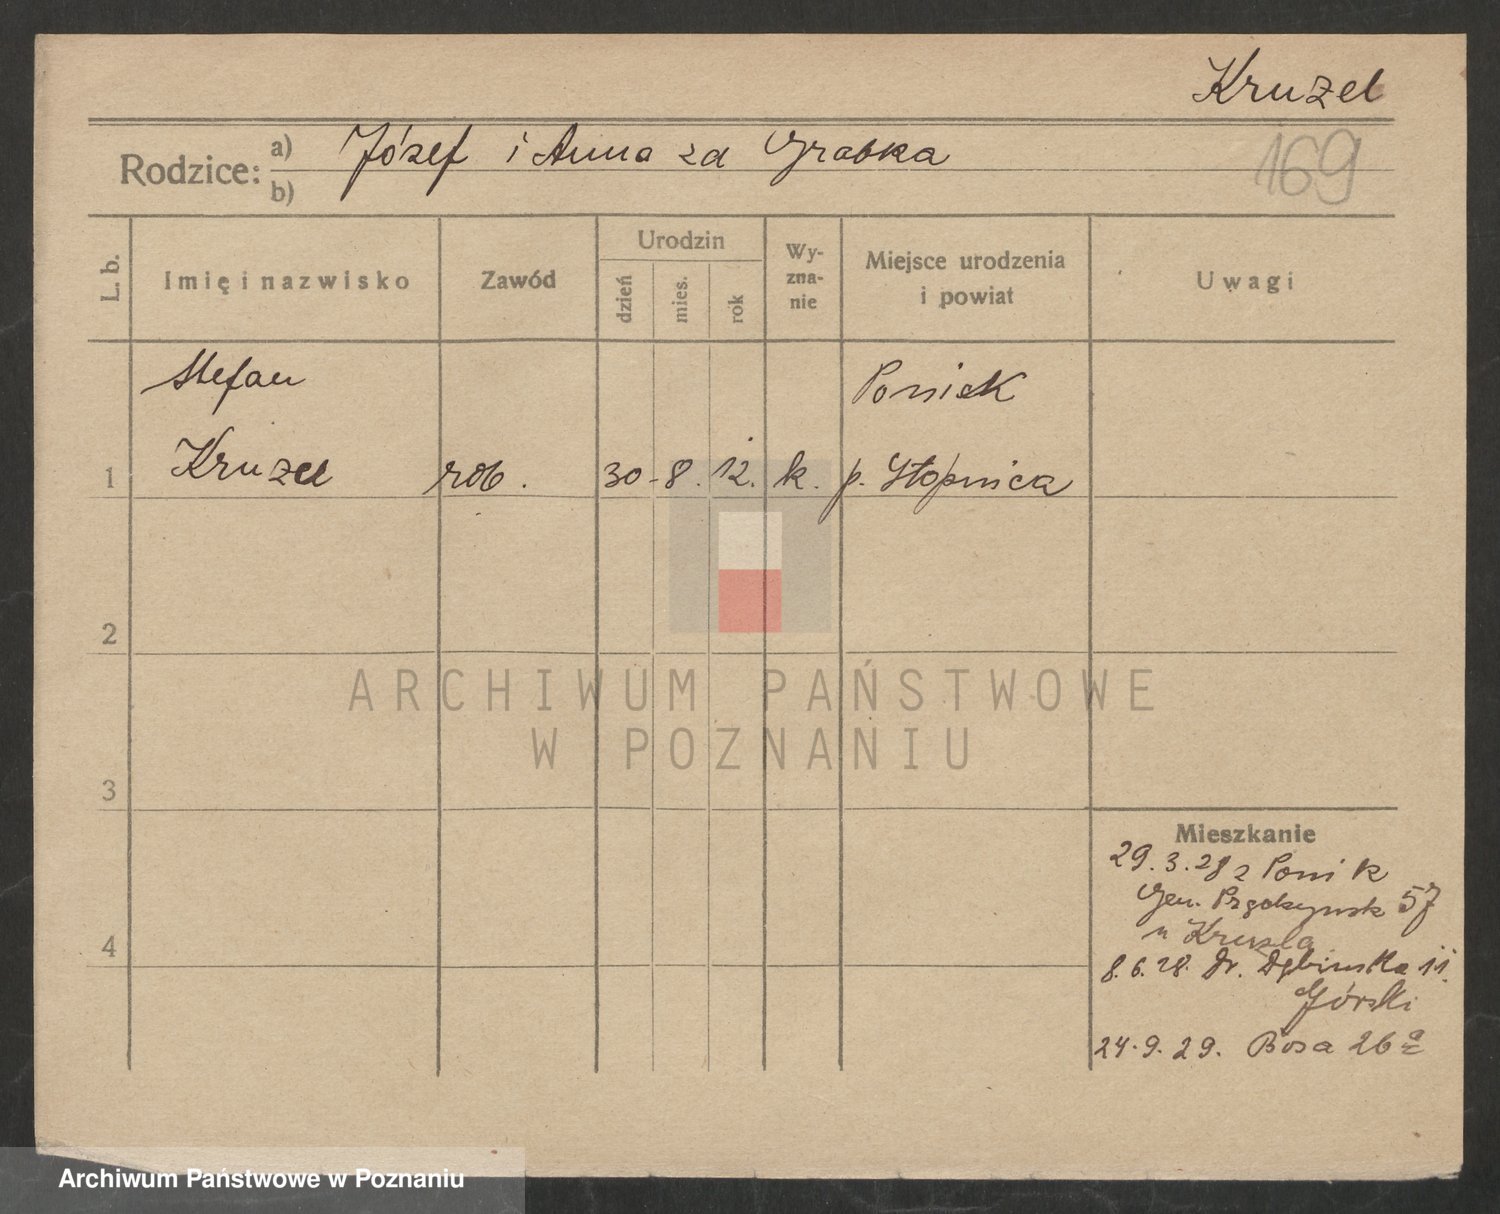 Kruzel
Rodzice: a) Józef i Anna zd Grabka
b)
169
L. b.
Imię i nazwisko
Zawód
Urodzin
dzień
mies.
rok
Wy-
zna-
nie
Miejsce urodzenia
i powiat
Uwagi
Stefan
Poniek
1 Kruzel rob. 30-8.12. k. p. Stopnica
2
3
4
Mieszkanie
29.3.28 z Ponik
Gen. Prądzyńsk 57
u Kruzla
8.6.28. Dr. Dębińska 11.
Górski
24.9.29. Bosa 26a
ARCHIWUM PAŃSTWOWE
W POZNANIU
Archiwum Państwowe w Poznaniu